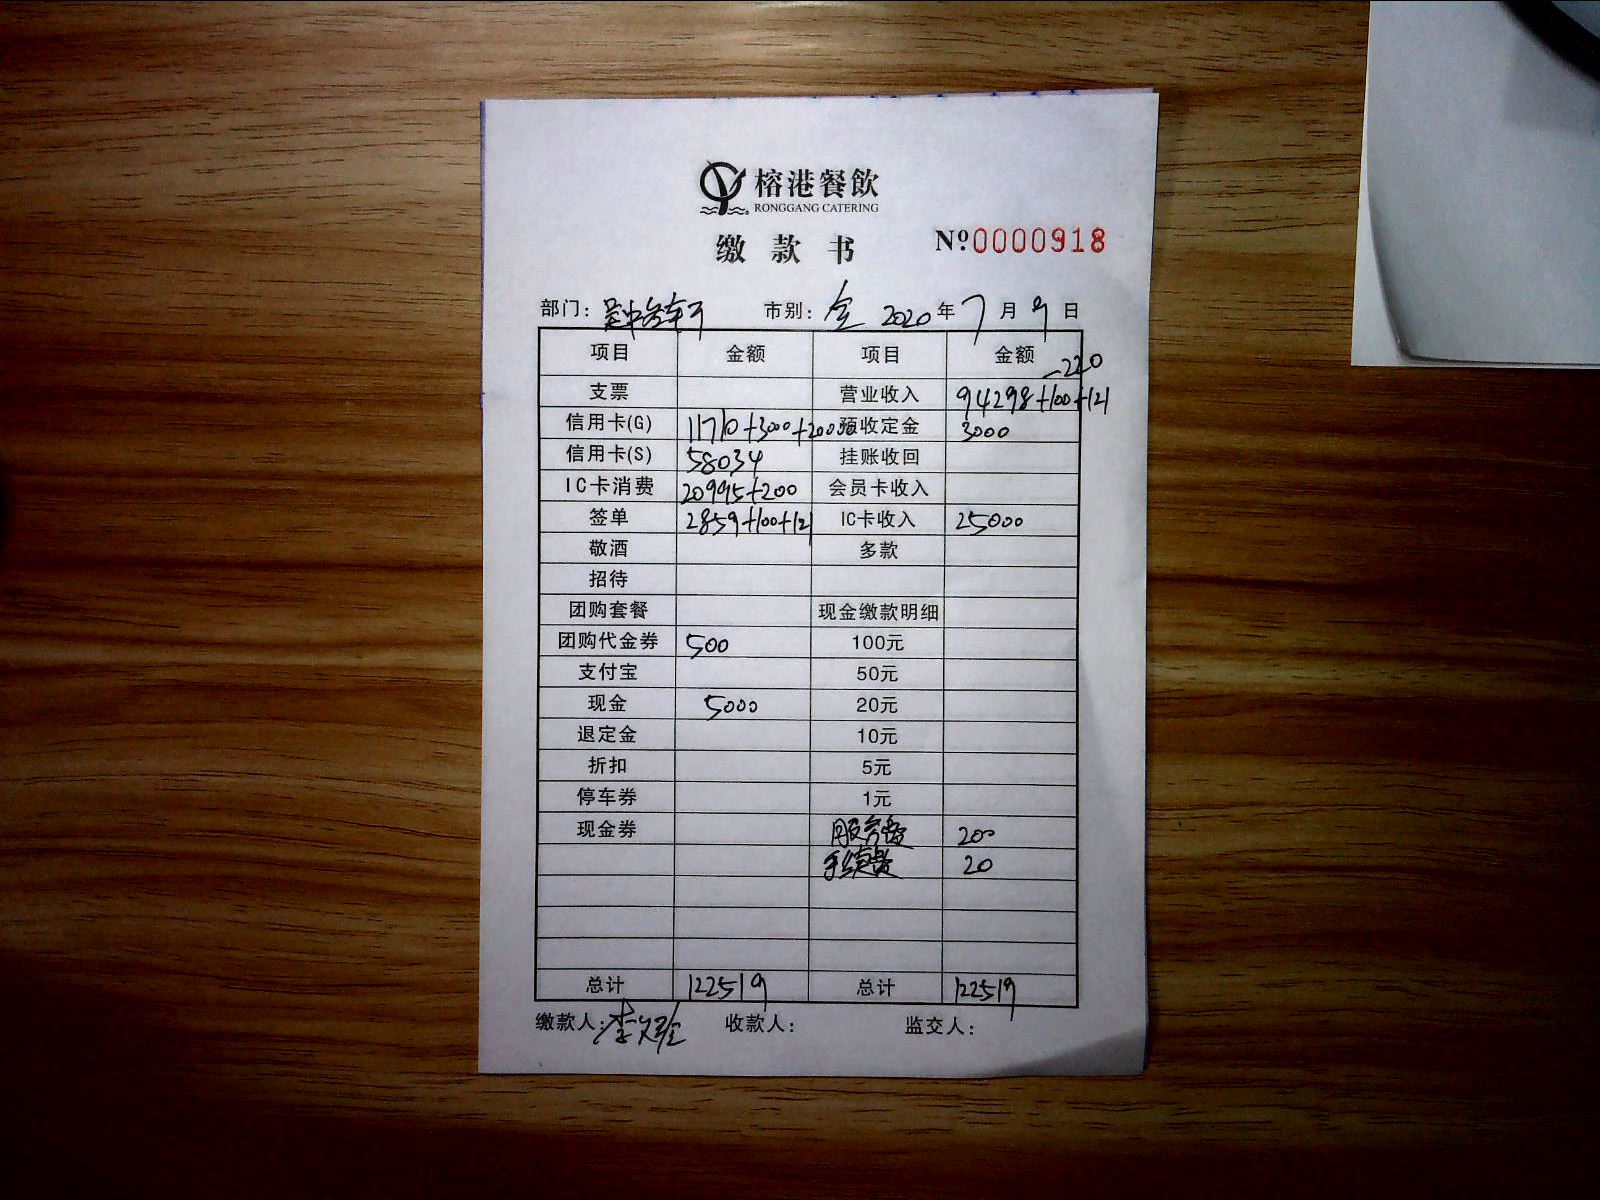 榕港餐飲
RONGGANG CATERING
缴款书 Nº0000918
部门: 市别: 全 2020年7月9日
项目 金额 项目 金额
-220
支票 营业收入 94298+100+121
信用卡(G) 11710+3000+20000 预收定金 3000
信用卡(S) 58034 挂账收回
IC卡消费 20995+200 会员卡收入
签单 2859+100+121 IC卡收入 25000
敬酒 多款
招待
团购套餐 现金缴款明细
团购代金券 500 100元
支付宝 50元
现金 5000 20元
退定金 10元
折扣 5元
停车券 1元
现金券 服务费 200
手续费 20
总计 122519 总计 122519
缴款人: 收款人: 监交人: